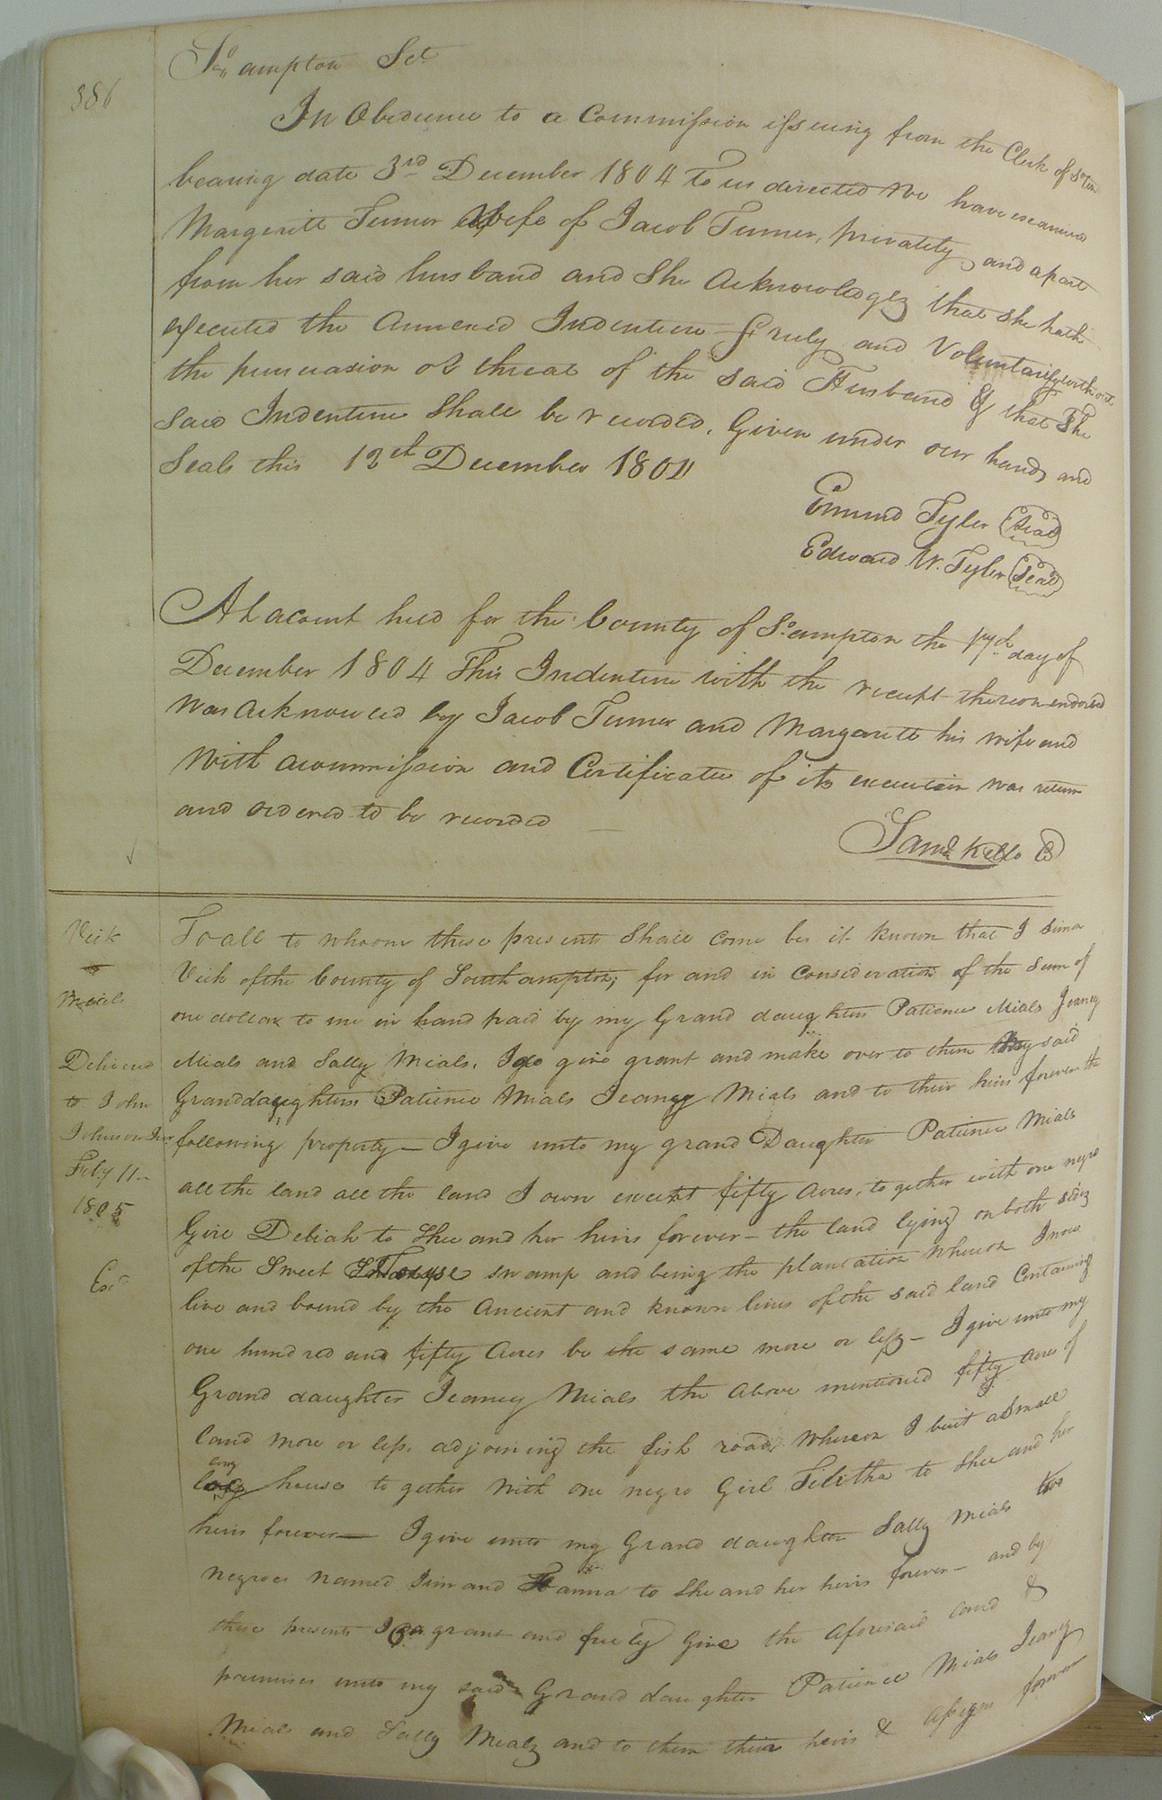 386
So ampton Sct
In Obedience to a Commission issueing from the Clerk of
bearing date 3rd December 1804 To us directed We have examined
Margeritt Turner Wife of Jacob Turner, privately and apart
from her said husband and She Acknowledgez that she hath
executed the Annexed Indenture freely and Voluntarily without
the pursuasion or threat of the said Husband & that The
said Indenture Shall be recorded. Given under our hands and
Seals this 12th December 1804
Emund Tyler (Seal)
Edward W. Tyler (Seal)
At acourt held for the County of So ampton the 17th day of
December 1804 This Indenture with the receipt thereon endorsed
was acknowled by Jacob Turner and Margarett his wife and
With acommission and Certificate of its execution was return
and ordered to be recorded
Saml Kello C
Vick
to
Mials
Delivered
to John
Johnson Junr
July 11
1805
Exd
To all to whom these presents Shall come be it known that I Simon
Vick of the County of Southampton, for and in Consideration of the Sum of
one dollar to me in hand paid by my Grand daughters Patience Mials Jeaney
Mials and Sally Mials. I do give grant and make over to them my said
Granddaughters Patience Mials Jeaney Mials and to their heirs forever the
following property — I give unto my grand Daughter Patience Mials
all the land all the land I own except fifty Acres, to gether with one negro
Girl Debiah to Shee and her heirs forever — the land lying on both sidez
of the Sweet House swamp and being the plantation whereon I now
live and bound by the Ancient and known lines of the said land Containing
one hundred and fifty Acres be the same more or less — I give unto my
Grand daughter Jeaney Mials the above mentioned fifty acres of
land more or less adjoining the fish road whereon I built a Small
log house to gether with one negro Girl Tilitha to Shee and her
heirs forever — I give unto my Grand daughter Sally Mials two
negroes named Jim and Hanna to She and her heirs forever — and by
these presents I do grant and freely Give the Aforesaid land &
premises unto my said Grand daughters Patience Mials Jeany
Mials and Sally Mialz and to them their heirs & Assigns forever